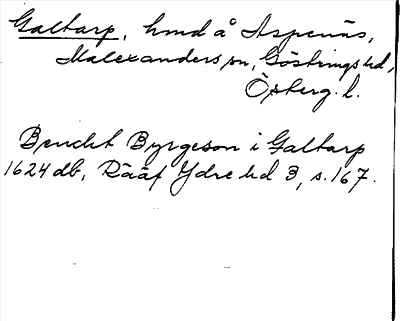 Galtarp, hmd å Aspenäs,
Malexanders sn, Göstrings hd,
Österg. l.
Bencht Byrgeson i Galtarp
1624 db, Rääf Ydre hd 3, s. 167.